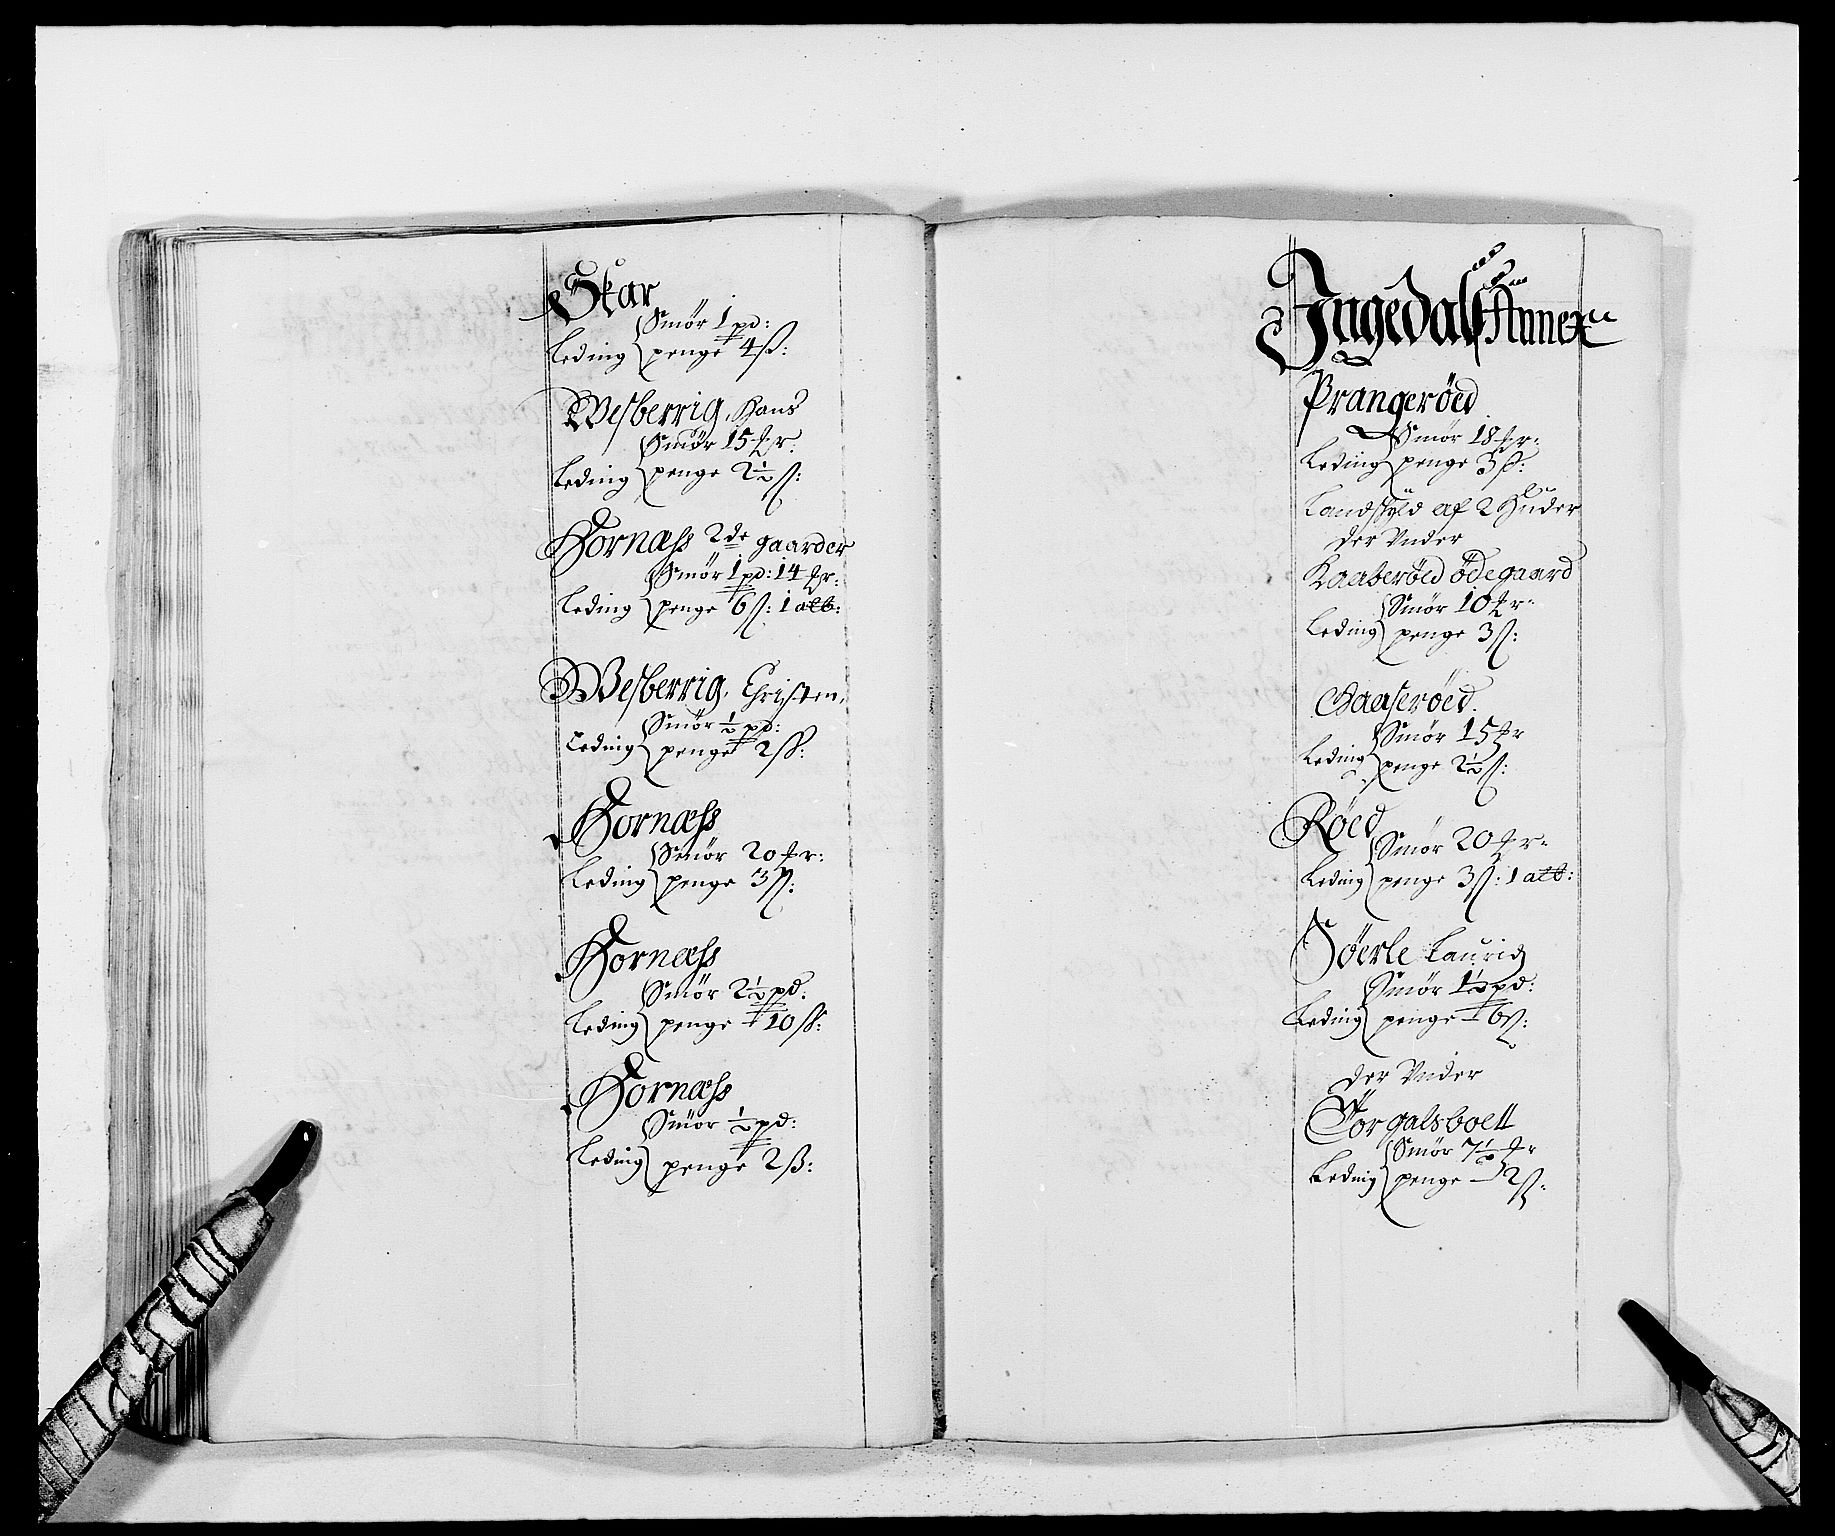 Skar
Smör 1 pd:
Leding penge 4 ß:
Wesberrig, Hans
Smör 15 #r.
Leding penge 2½ ß:
Hornæss 2de gaarder
Smör 1 pd: 14 #r:
Leding penge 6 ß: 1 alb:
Wesberrig, Christen,
Smör ½ pd:
Leding penge 2 ß:
Hornæss
Smör 20 #r:
Leding penge 3 ß:
Hornæss
Smör 2½ pd:
Leding penge 10 ß:
Hornæss
Smör ½ pd:
Leding penge 2 ß:
Ingedals Annex
Prangeröed
Smör 18 #r:
Leding penge 3 ß:
Landskyld af 2 Huder
der Vnder
Kaaseröed ödegaard
Smör 10 #r:
Leding penge 3 ß:
Baaseröed.
Smör 15 #r
Leding penge 2½ ß:
Röed
Smör 20 #r:
Leding penge 3 ß: 1 alb:
Jöerle Laurig
Smör 1½ pd:
Leding penge 6 ß:
der Vnder
Torgalsboell
Smör 7½ #r
Leding penge 2 ß: